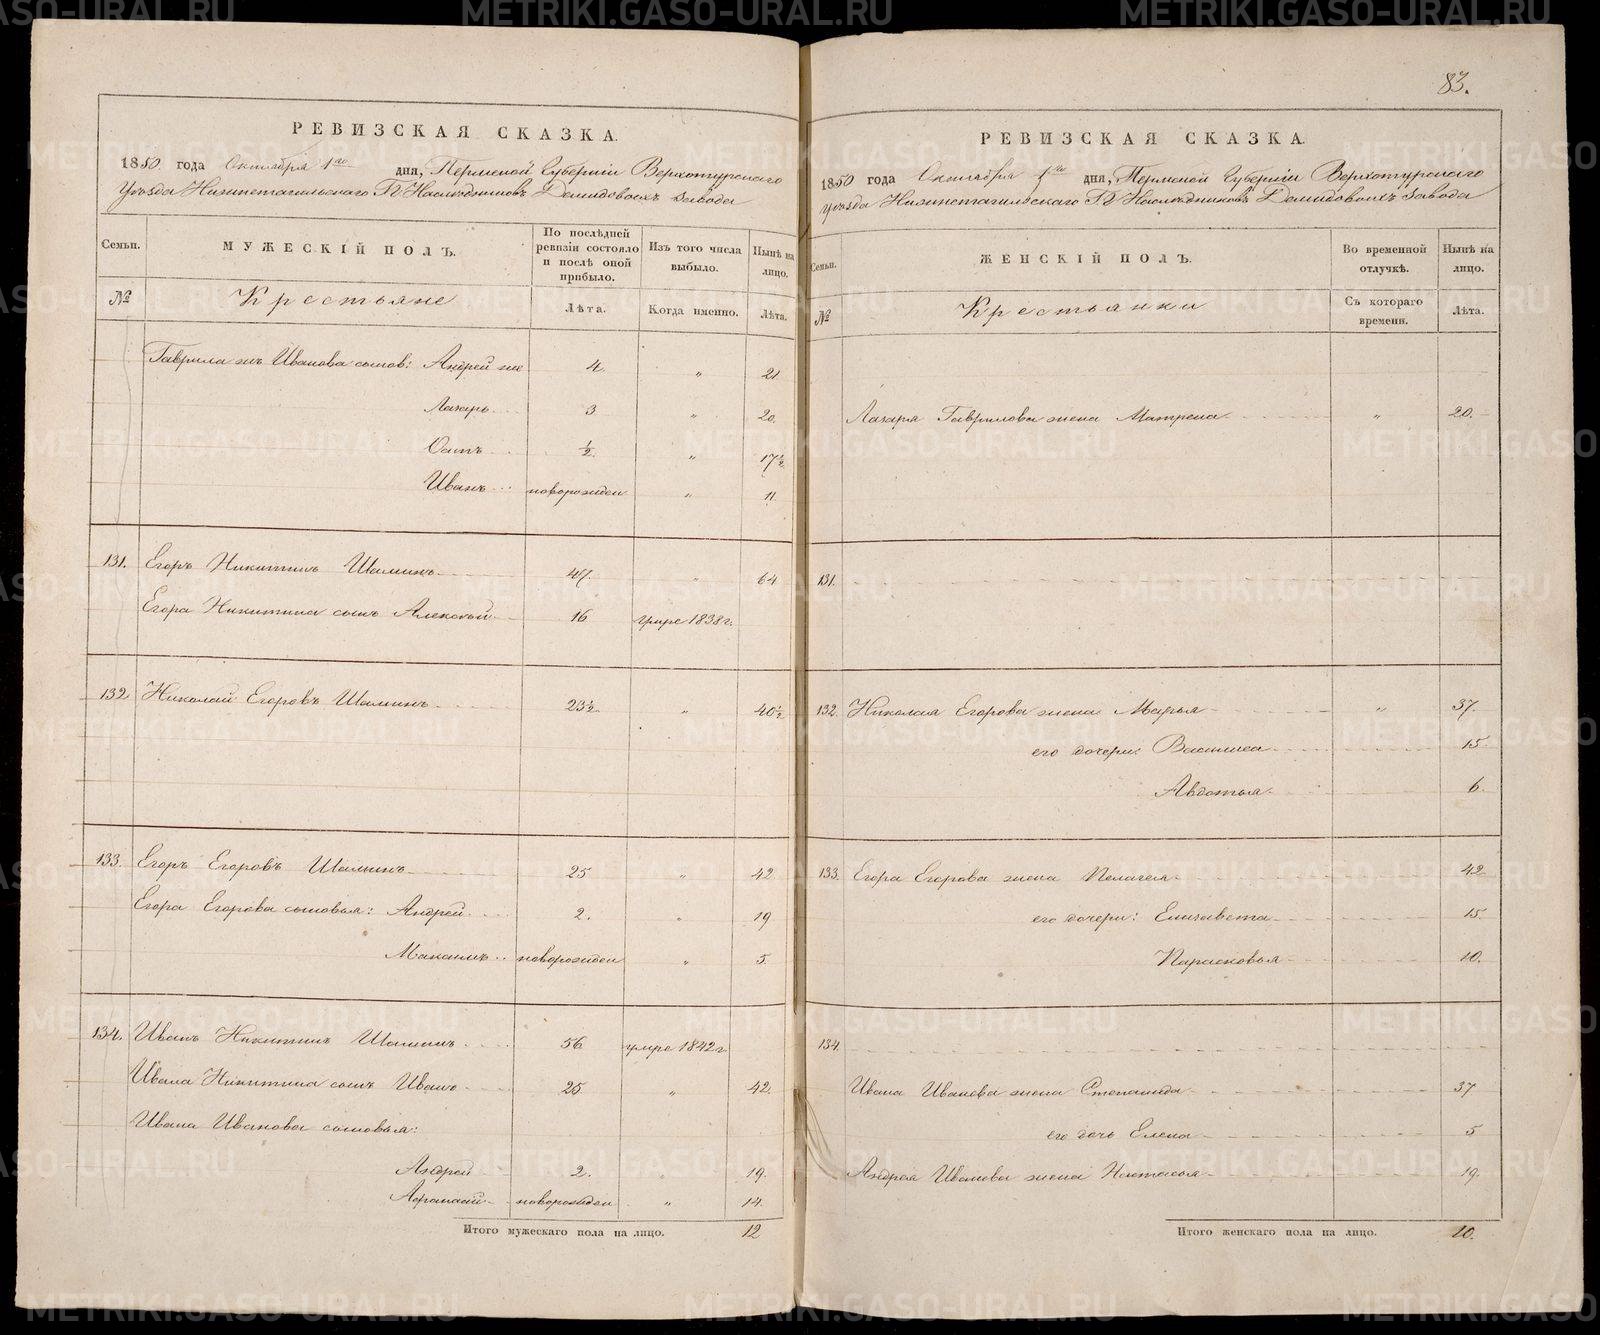 83.
РЕВИЗСКАЯ СКАЗКА.
1850 года Октября 1го дня, Пермской Губерніи Верхотурскаго
Уѣзда Нижнетагильскаго Гг. Наслѣдниковъ Демидовыхъ завода
Семьи. МУЖЕСКІЙ ПОЛЪ. По послѣдней ревизіи состояло и послѣ оной прибыло. Изъ того числа выбыло. Нынѣ на лицо.
№ Крестьяне Лѣта. Когда именно. Лѣта.
Гаврила жъ Иванова сынов: Андрей же 4. „ 21
Лазарь 3 „ 20.
Осипъ ½. „ 17½
Иванъ новорожден „ 11.
131. Егоръ Никитинъ Шаминъ 47. „ 64
Егора Никитина сынъ Алексѣй 16 умре 1838 г.
132 Николай Егоровъ Шаминъ 23½ „ 40½
133. Егоръ Егоровъ Шаминъ 25 „ 42
Егора Егорова сыновья: Андрей 2. „ 19
Максимъ новорожден „ 5.
134. Иванъ Никитинъ Шаминъ 56 умре 1842 г
Ивана Никитина сынъ Иванъ 25 „ 42.
Ивана Иванова сыновья:
Андрей 2. „ 19.
Афанасій новорожден „ 14.
Итого мужескаго пола на лицо. 12
РЕВИЗСКАЯ СКАЗКА.
1850 года Октября 1го дня, Пермской Губерніи Верхотурскаго
Уѣзда Нижнетагильскаго Гг. Наслѣдниковъ Демидовыхъ завода
Семьи. ЖЕНСКІЙ ПОЛЪ. Во временной отлучкѣ. Нынѣ на лицо.
№ Крестьянки Съ котораго времени. Лѣта.
Лазаря Гаврилова жена Матрена „ 20.
131.
132. Николая Егорова жена Марья „ 37.
его дочери: Васильса 15.
Авдотья 6.
133. Егора Егорова жена Пелагея 42
его дочери: Елизавета 15.
Парасковья 10.
134.
Ивана Иванова жена Степанида 37
его дочь Елена 5
Андрея Иванова жена Настасья 19.
Итого женскаго пола на лицо. 10.
METRIKI.GASO-URAL.RU